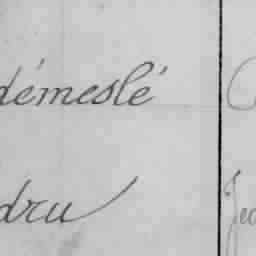 démeslé
dru